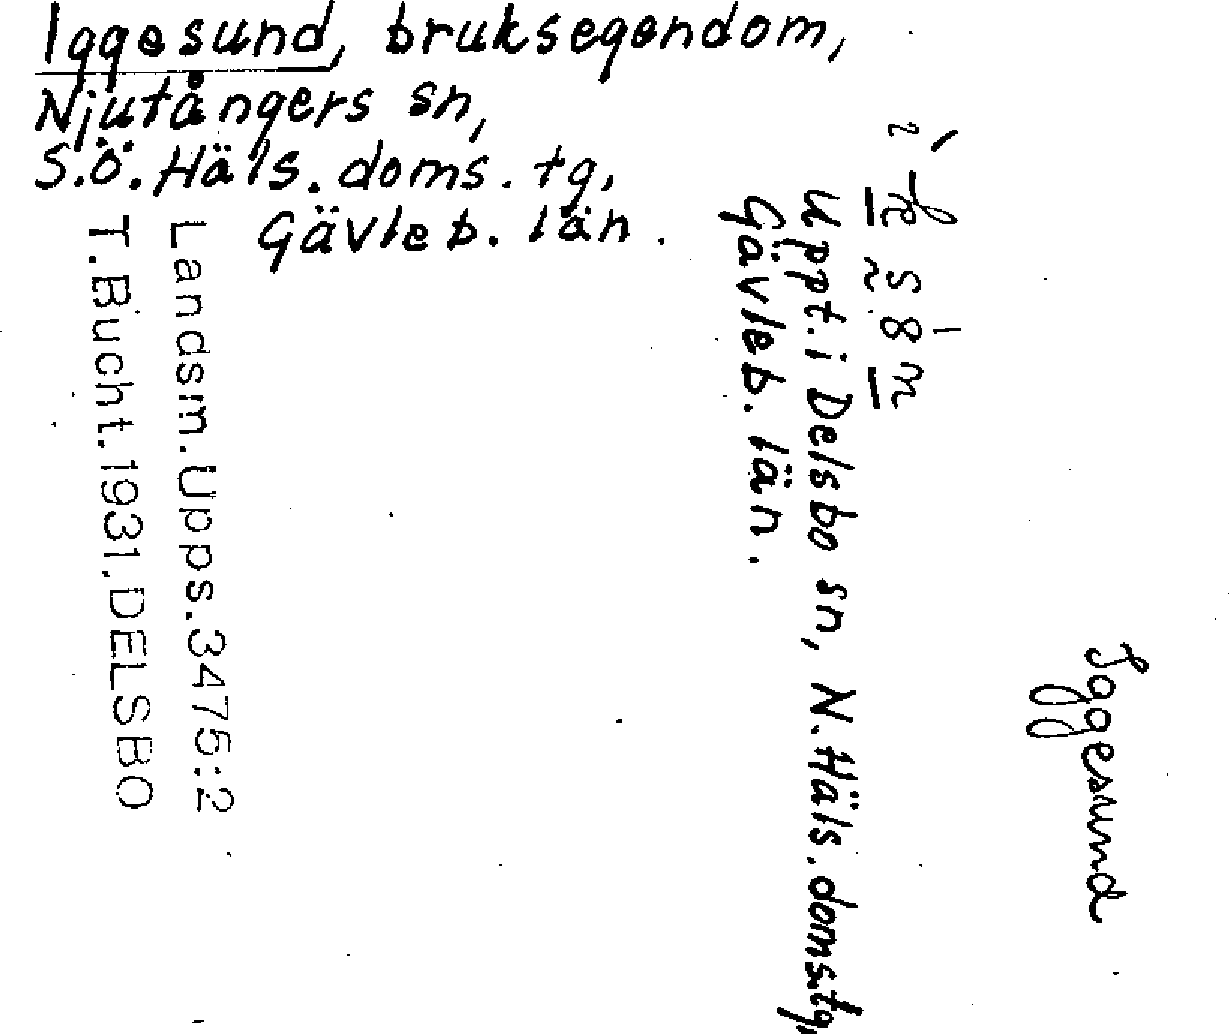 Iggesund, bruksegendom,
Njutångers sn,
S.Ö. Häls. doms. tg,
Gävleb. län.
Uppt. i Delsbo sn, N. Häls. domstg,
Gävleb. län.
Landsm. Upps. 3475:2
T. Bucht. 1931. DELSBO
Iggesund